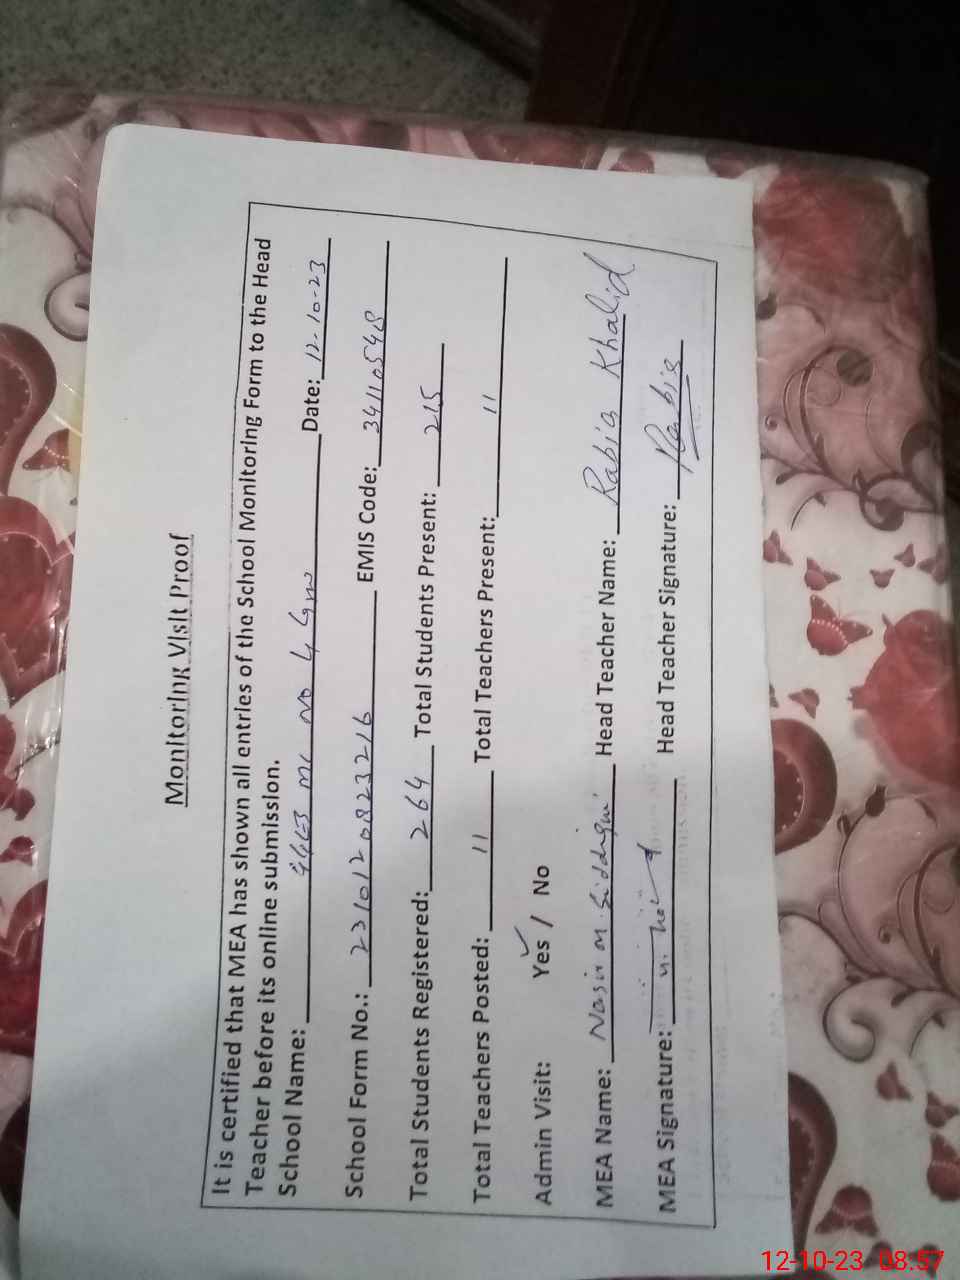 Monitoring Visit Proof
It is certified that MEA has shown all entries of the School Monitoring Form to the Head
Teacher before its online submission.
School Name: MC No 4 Date: 12-10-23
School Form No.: 231012 0823216 EMIS Code: 34110548
Total Students Registered: 264 Total Students Present: 215
Total Teachers Posted: 11 Total Teachers Present: 11
Admin Visit: Yes / No
MEA Name: Nasir M. Siddiqui Head Teacher Name: Rabia Khalid
MEA Signature: Head Teacher Signature: Rabia
12-10-23 08:57